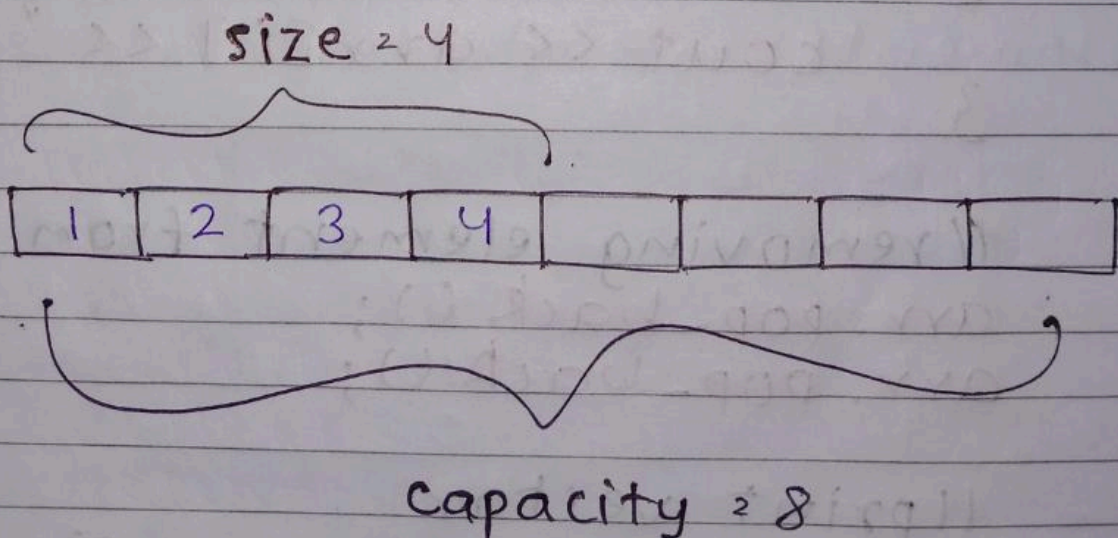 size = 4
1 2 3 4
capacity = 8